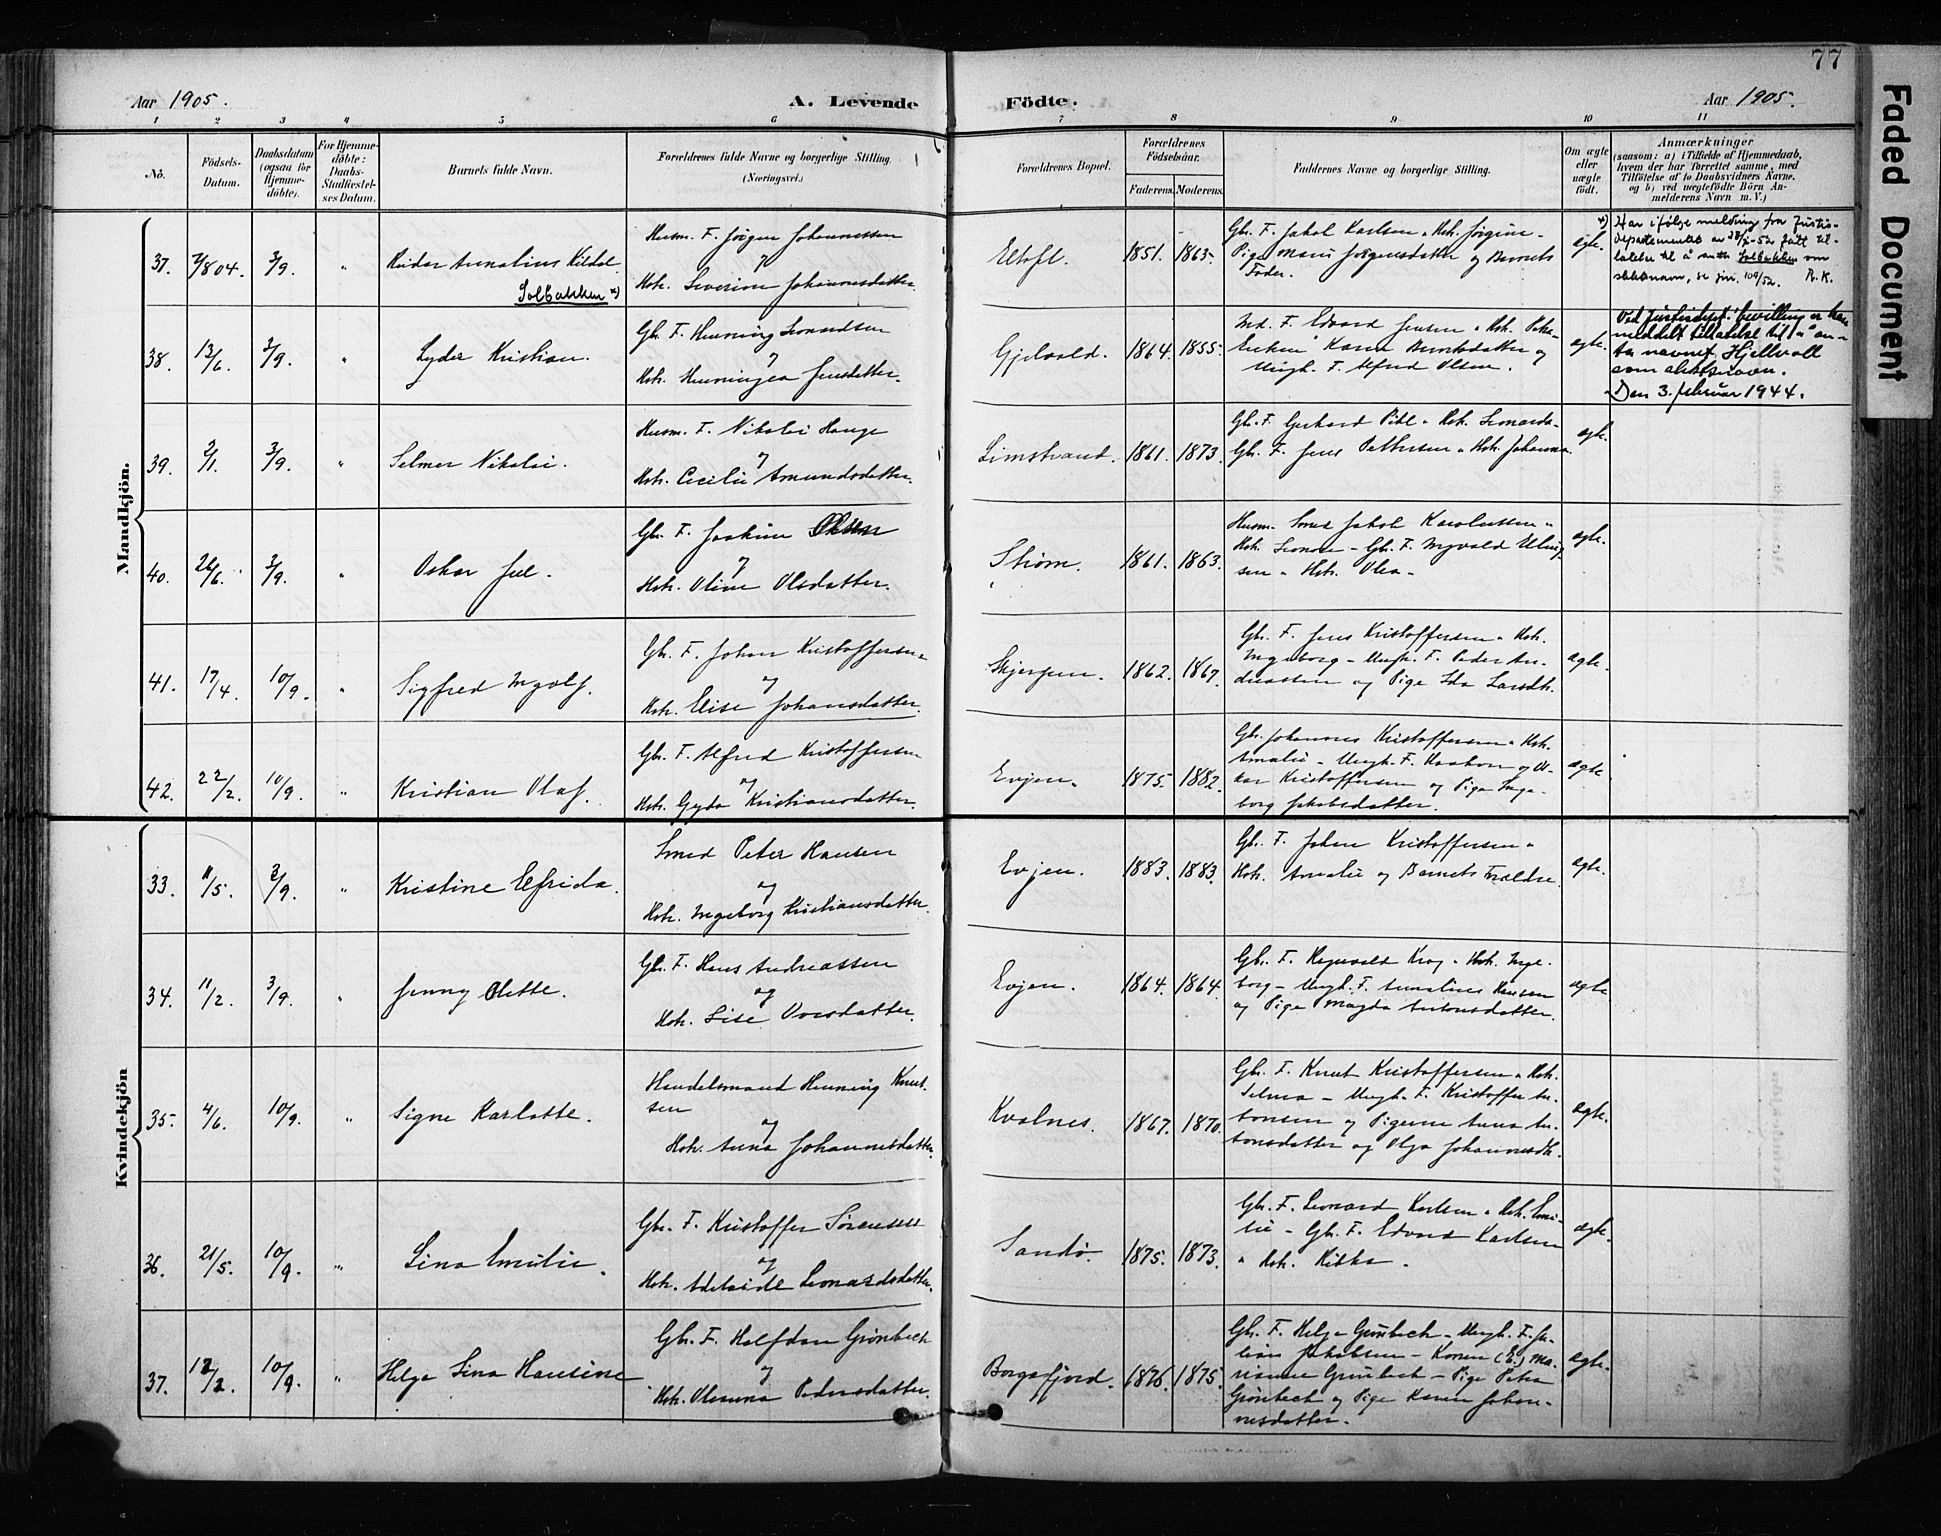 77
Faded Document
Aar 1905.
A. Levende
Födte.
Aar 1905.
1 2 3 4 5 6 7 8 9 10 11
No.
Födsels-
Datum.
Daabsdatum
(ogsaa for
Hjemme-
döbte).
For Hjemme-
döbte:
Daabs-
Stadfæstel-
ses Datum.
Barnets fulde Navn.
Forældrenes fulde Navne og borgerlige Stilling.
(Næringsvei.)
Forældrenes Bopæl.
Forældrenes
Födselsaar.
Faderens. Moderens.
Faddernes Navne og borgerlige Stilling.
Om ægte
eller
uægte
født.
Anmærkninger
(saasom: a) i Tilfælde af Hjemmedaab,
hvem der har forrettet samme, med
Tilföielse af to Daabsvidners Navne,
og b) ved uægtefödte Börn An-
melderens Navn m. V.)
Mandkjön.
37. 3/9. "
Solbakken x)
Husm. F. Jørgen Johannessen
og
Hstr. Severine Johannesdatter.
Eltoft. 1851. 1863.
Gbr. F. Jakob Karlsen " Hstr. Jørgine -
Pige Marie Jørgensdatter og Barnets
Fader.
ægte.
x) Har ifølge melding fra Justis-
departementet av
Solbakken som
slektsnavn, se jnr. 109/52. R.K.
38. 13/6. 3/9. " Lyder Kristian.
Gbr. F. Henning Leonardsen
og
Hstr. Henningea Jensdatter.
Gjelvold. 1864. 1855.
Ind. F. Edvard Jensen " Hstr. Petra -
Enken Karen Berntsdatter og
Ungk. F. Alfred Olsen.
ægte.
Ved Justisdept. bevilling er han
meddelt tillatelse til å an-
ta navnet Hjellvoll
som slektsnavn.
Den 3. februar 1944.
39. 2/1. 3/9. " Selmer Nikolai.
Husm. F. Nikolai Hauge
og
Hstr. Cecilie Amundsdatter.
Limstrand. 1861. 1873.
Gbr. F. Gerhard Pihl " Hstr. Leonarda -
Gbr. F. Jens Pettersen " Hstr. Johanna.
ægte.
40. 26/6. 3/9. " Oskar Juel.
Gbr. F. Joakim Olsen
og
Hstr. Oline Olsdatter.
Strøm. 1861. 1863.
Husm. Smed Jakob Karolussen "
Hstr. Leonore - Gbr. F. Ingvald Eling
sen " Hstr. Olea -
ægte.
41. 17/4. 10/9. " Sigfred Ingolf.
Gbr. F. Johan Kristoffersen
og
Hstr. Elise Johansdatter.
Skjerpen. 1862. 1867.
Gbr. F. Jens Kristoffersen " Hstr.
Ingeborg - Ungk. F. Peder An-
dreassen og Pige Ida Larsdtr.
ægte.
42. 22/2. 10/9. " Kristian Olaf.
Gbr. F. Alfred Kristoffersen
og
Hstr. Gyda Kristiansdatter.
Evjen. 1875. 1882.
Gbr. Johannes Kristoffersen " Hstr.
Amalie - Ungk. F. Haakon og
Kristoffersen og Pige Inge-
borg Jakobsdatter.
ægte
Kvindekjön
33. 11/5. 3/9. " Kristine Elfrida.
Smed Peter Hansen
og
Hstr. Ingeborg Kristiansdatter.
Evjen. 1883. 1883.
Gbr. F. Johan Kristoffersen "
Hstr. Amalie og Barnets Forældre.
ægte.
34. 11/2. 3/9. " Jenny Olette.
Gbr. F. Hans Andreassen
og
Hstr. Lise Ovesdatter.
Evjen. 1864. 1864.
Gbr. F. Regnvald Krog " Hstr. Inge-
borg - Ungk. F. Annalius Hansen
og Pige Magda Antonsdatter.
ægte
35. 4/6. 10/9. " Signe Karlotte.
Handelsmand Henning Knut-
sen
og
Hstr. Anna Johannesdatter.
Kvalnes. 1867. 1870.
Gbr. F. Knut Kristoffersen " Hstr.
Selma - Ungk. F. Kristoffer An-
tonsen og Pigerne Anna An-
tonsdatter og Olga Johannesdtr.
ægte.
36. 21/5. 10/9. " Lina Emilie.
Gbr. F. Kristoffer Sørensen
og
Hstr. Adelaide Leonardsdatter.
Sandø. 1875. 1873.
Gbr. F. Leonard Karlsen " Hstr. Emi-
lie - Gbr. F. Edvard Karlsen
" Hstr. Rikka.
ægte.
37. 10/9. " Helga Lina Hansine
Gbr. F. Halfdan Grønbech
og
Hstr. Olemina Pedersdatter.
Borgefjord. 1876. 1875.
Gbr. F. Helge Grønbech - Ungk. F. Ju-
lius Jakobsen - Konen (E.) Ma-
rianne Grønbech - Pige Petra
Grønbech og Pige Karen Johan-
nesdatter.
ægte.